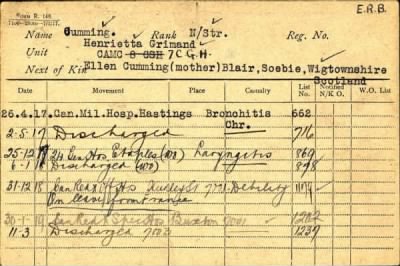 Form R. 149. E.R.B.
Name Cumming. Rank N/Str. Reg. No.
Henrietta Grimand
Unit CAMC 8 CSH 7 C G H.
Next of Kin Ellen Cumming(mother)Blair, Soebie, Wigtownshire
Scotland
Date Movement Place Casualty List No. Notified N/K O. W.O. List
26.4.17 Can.Mil.Hosp.Hastings Bronchitis 662
Chr.
2-5-17 Discharged 716
25-12-17 24 Gen Hos Etaples (WO) Laryngitis 869
6-1-18 Discharged (WO) 878
31-12-18 Can Red X Hos 7721 Debility
On leave from
30-1-19 Can Red X Spec Hos Buxton 1202
11-3 Discharged 7003 1239